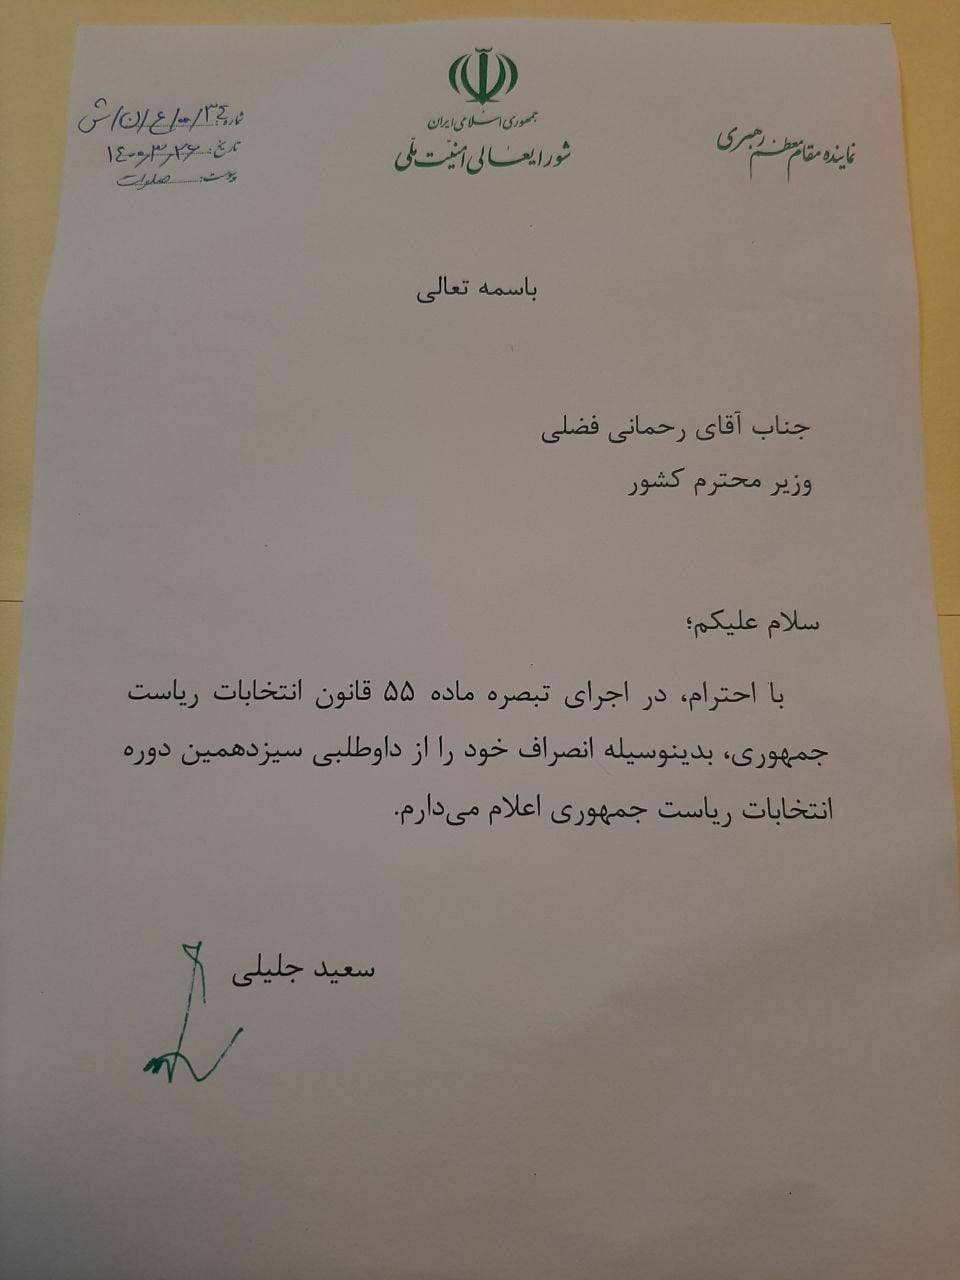 جمهوری اسلامی ایران
شورایعالی امنیت ملی
نماینده مقام معظم رهبری
شماره: ۳۴/۰۰/ع/ن/ش
تاریخ: ۱۴۰۰/۳/۲۶
پیوست: صلوات
باسمه تعالی
جناب آقای رحمانی فضلی
وزیر محترم کشور
سلام علیکم؛
با احترام، در اجرای تبصره ماده ۵۵ قانون انتخابات ریاست
جمهوری، بدینوسیله انصراف خود را از داوطلبی سیزدهمین دوره
انتخابات ریاست جمهوری اعلام می‌دارم.
سعید جلیلی